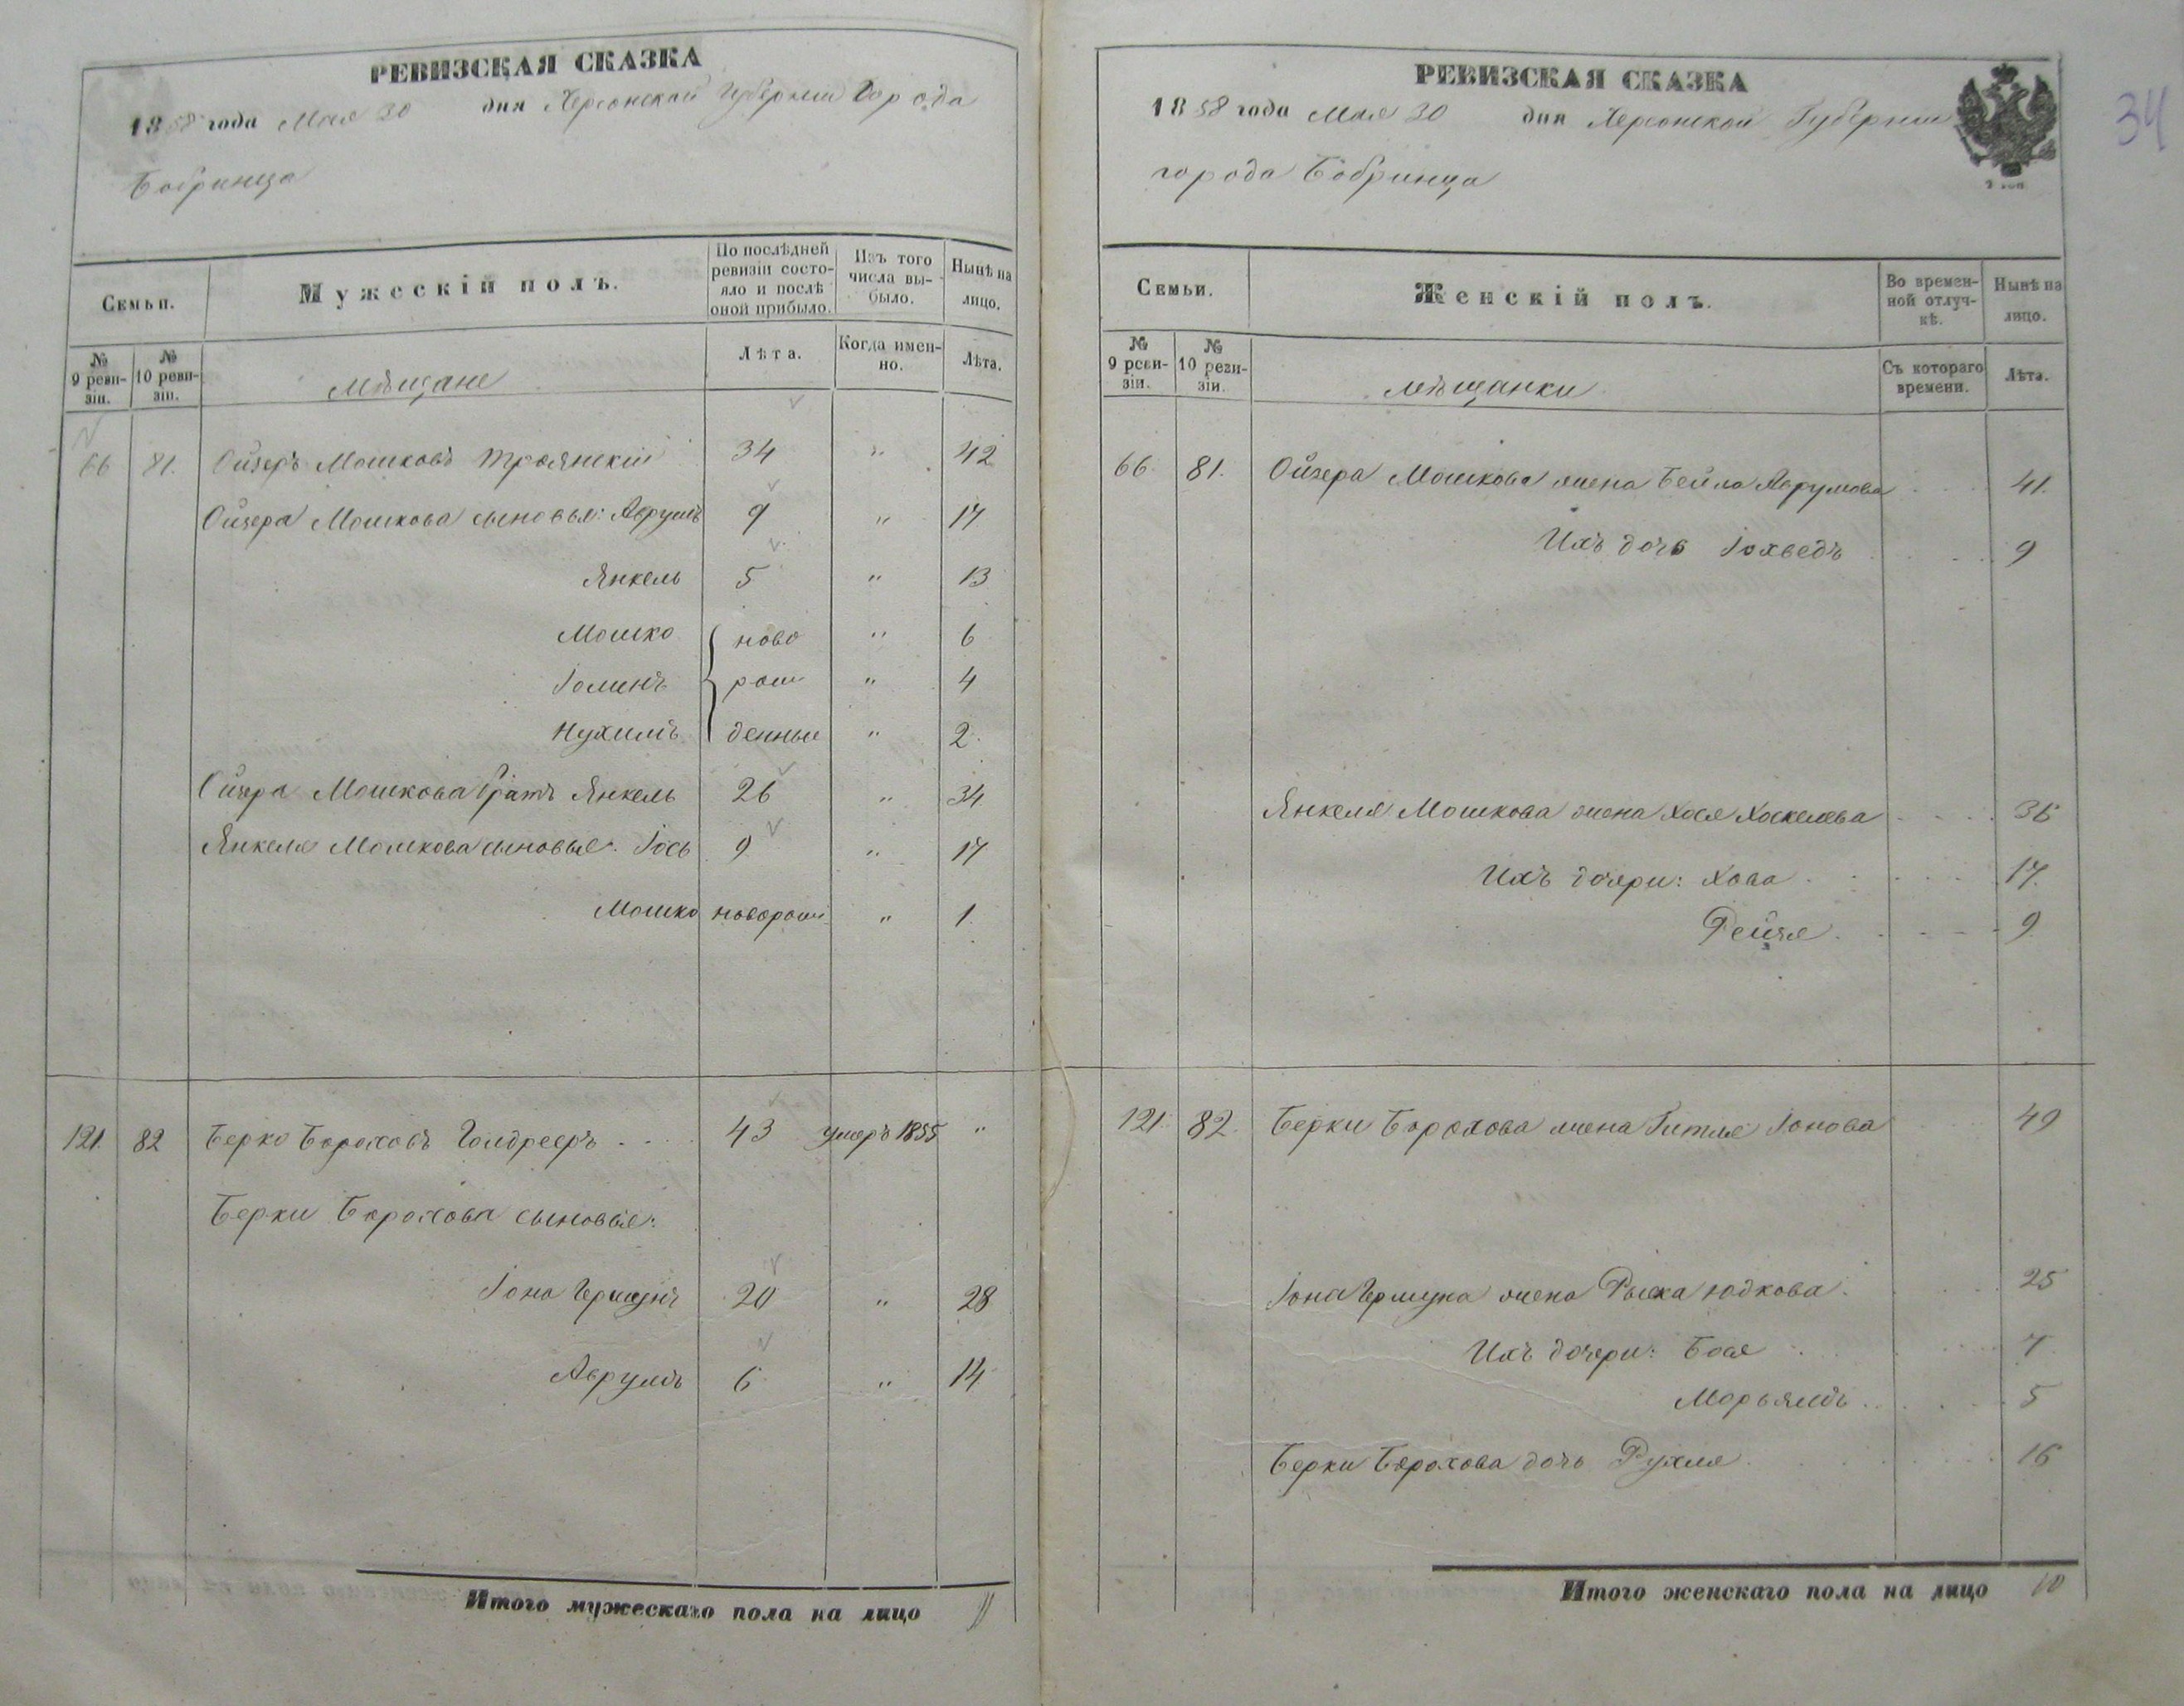 РЕВИЗСКАЯ СКАЗКА
1858 года Мая 30 дня Херсонской Губернии Города
Бобринца
Семьи.
Мужескій полъ.
По послѣдней ревизіи состояло и послѣ оной прибыло.
Изъ того числа выбыло.
Нынѣ на лицо.
№ 9 ревизіи.
№ 10 ревизіи.
мѣщане
Лѣта.
Когда именно.
Лѣта.
66 81. Ойзеръ Мошковъ Троянскій 34 " 42
Ойзера Мошкова сыновья: Аврумъ 9 " 17
Янкель 5 " 13
Мошко ново " 6
рож " 4
Нухимъ денные " 2
Ойзера Мошкова братъ Янкель 26 " 34
Янкеля Мошкова сыновья: Іось 9 " 17
Мошко новорож " 1
121. 82 Берко Бороховъ 43 умеръ 1855 "
Берки Борохова сыновья:
Іона Гершунъ 20 " 28
Аврумъ 6 " 14
Итого мужескаго пола на лицо 11
РЕВИЗСКАЯ СКАЗКА
1858 года Мая 30 дня Херсонской Губерніи
города Бобринца
34
Семьи.
Женскій полъ.
Во временной отлучкѣ.
Нынѣ на лицо.
№ 9 ревизіи.
№ 10 ревизіи.
мѣщанки
Съ котораго времени.
Лѣта.
66. 81. Ойзера Мошкова жена Бейла Аврумова 41.
Ихъ дочь Іохведъ 9
Янкеля Мошкова жена Хася Хаскелева
Ихъ дочери: Хова 17.
Рейзя 9
121. 82. Берки Борохова жена Гитля Іонова 49
Іона Гершуна жена Рыска Юдкова 25
Ихъ дочери: Бася 7
Марьямъ 5
Берки Борохова дочь Рухля 16
Итого женскаго пола на лицо 10